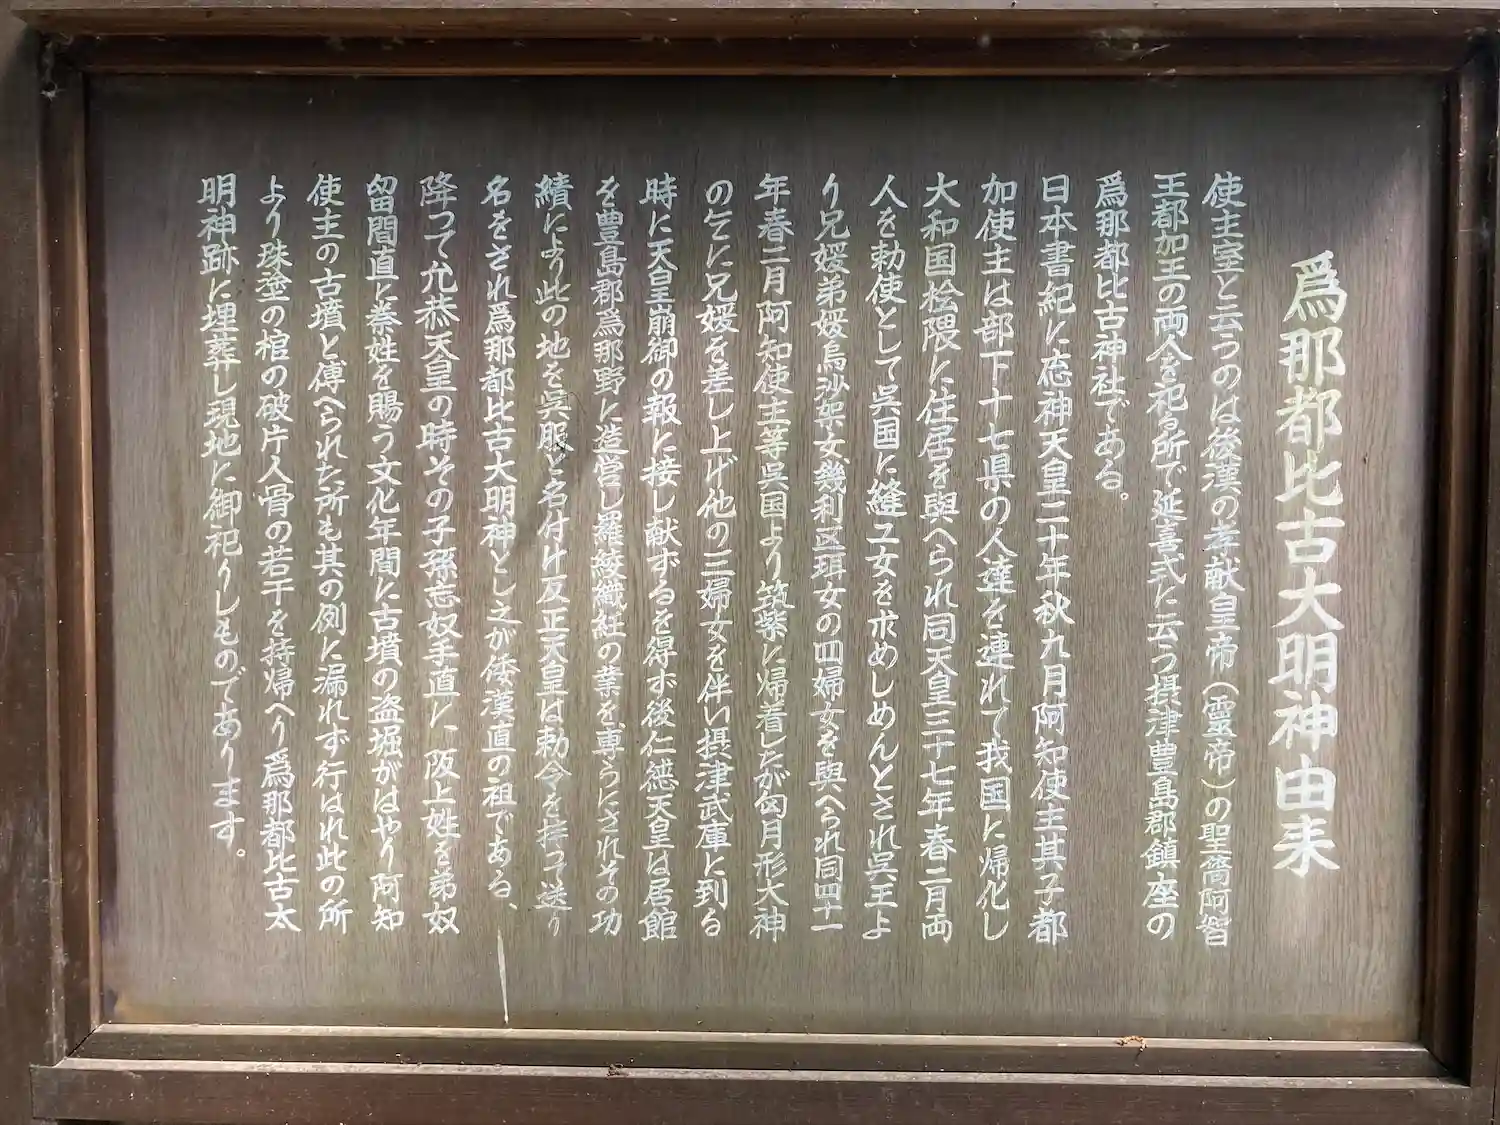 爲那都比古大明神由来
使主室と云うのは後漢の孝献皇帝（霊帝）の聖裔阿智
王都加王の両人を祀る所で延喜式に云う摂津豊島郡鎮座の
爲那都比古神社である。
日本書紀に応神天皇二十年秋九月阿知使主其子都
加使主は部下十七県の人達を連れて我国に帰化し
大和国桧隈に住居を與へられ同天皇三十七年春二月両
人を勅使として呉国に縫工女を求めしめんとされ呉王よ
り兄媛弟媛烏沙架女、幾利、区珥女の四婦女を與へられ同四十一
年春二月阿知使主等呉国より筑紫に帰着したが匈月形大神
の乞に兄媛を差し上げ他の三婦女を伴い摂津武庫に到る
時に天皇崩御の報に接し献ずるを得ず後仁徳天皇は居館
を豊島郡爲那野に造営し羅綾織紝の業を、専らにされその功
績により此の地を呉服と名付け反正天皇は勅令を持って送り
名をされ爲那都比古大明神とし之が倭漢直の祖である、
降つて允恭天皇の時その子孫志奴手直に、阪上姓を弟奴
留間直に秦姓を賜う文化年間に古墳の盗堀がはやり阿知
使主の古墳と傳へられた所も其の例に漏れず行はれ此の所
より珠塗の棺の破片人骨の若干を持帰へり爲那都比古太
明神跡に埋葬し現地に御祀りしものであります。